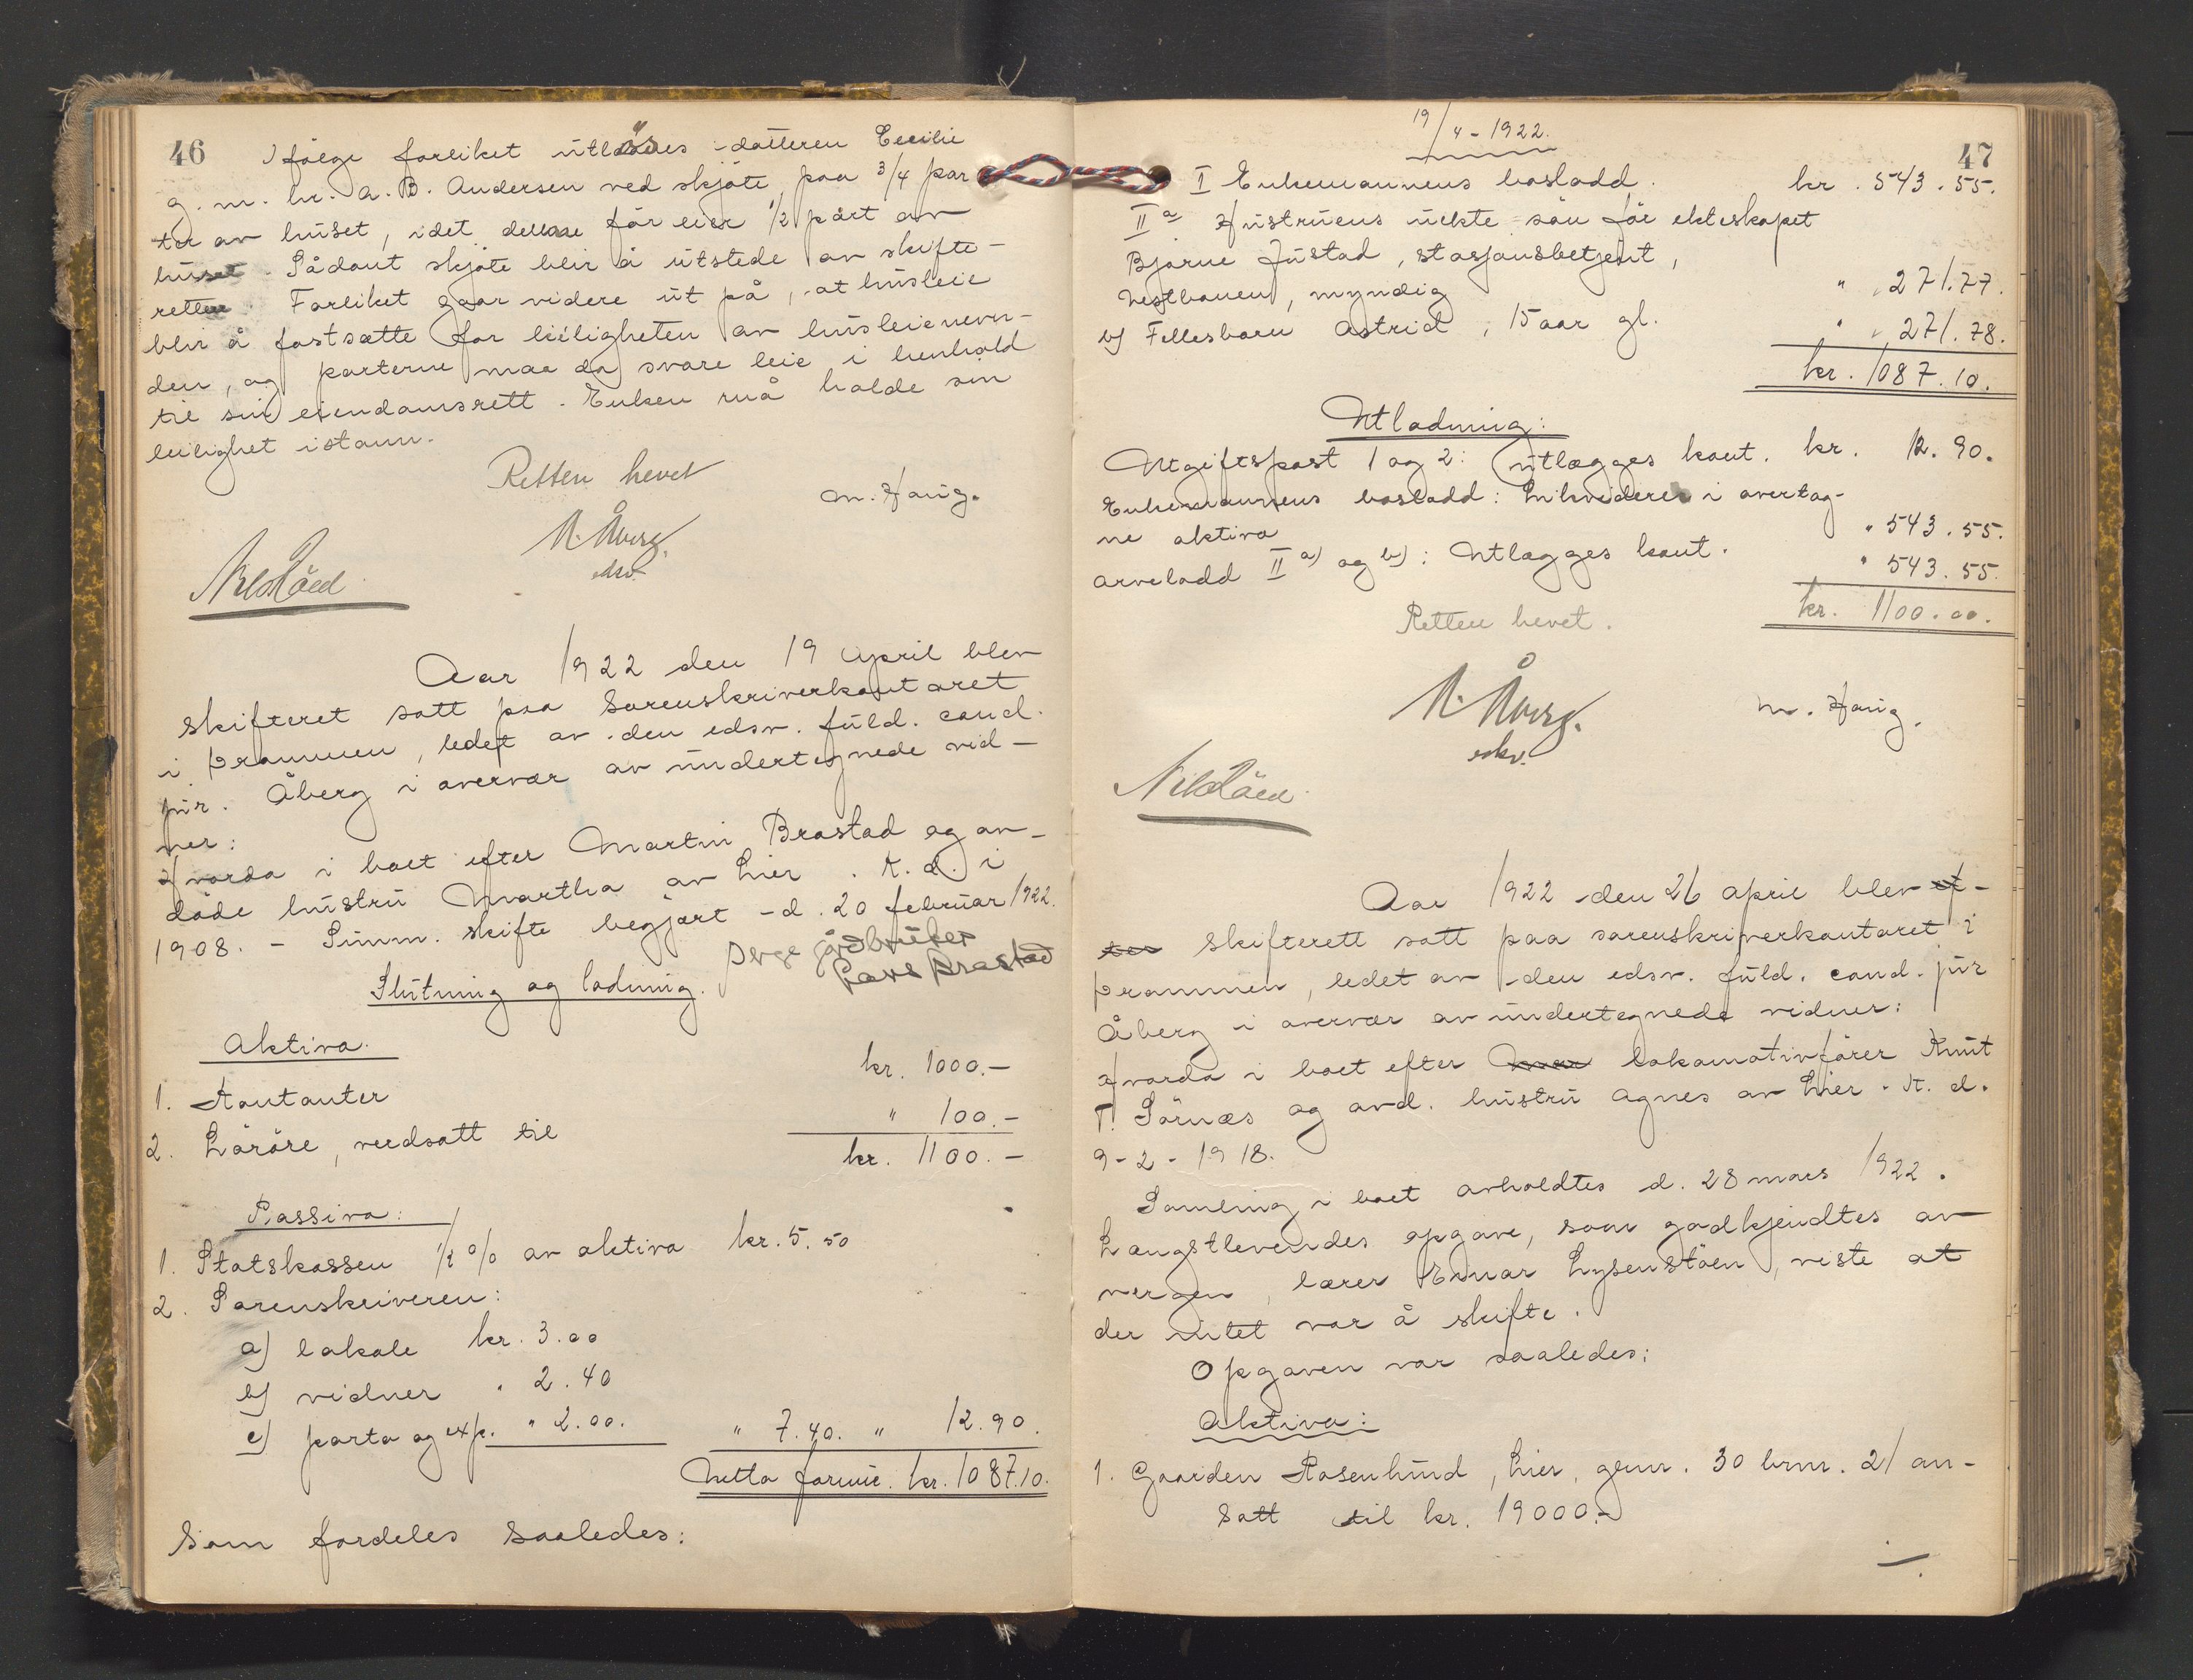 46
Ifölge forliket utlöses datteren Cecilie
g. m. hr. A. B. Andersen ved skjöte, paa 3/4 par
ter av huset, idet denne för eier 1/2 part av
huset. Sådant skjöte blir å utstede av skifte-
retten. Forliket gaar videre ut på, at husleie
blir å fastsætte for leiligheten av husleienevn-
den, og parterne maa da svare leie i henhold
til sin eiendomsrett. Enken må holde sin
leilighet istann.
Retten hevet
M. Haug.
N. Åberg.
edsv.
Aar 1922 den 19 april blev
skifteret satt paa Sorenskriverkontoret
i Drammen, ledet av den edsv. fuld. cand.
jur. Åberg i overvær av undertegnede vid-
ner:
Hvorda i boet efter Martin Brastad og av-
döde hustru Martha av Lier. K. d. i
1908. - Summ. skifte begjært d. 20 februar 1922.
Slutning og lodning.
Verge gårdbruker
Lars Brastad
Aktiva.
1. Kontanter kr. 1000.-
2. Lösöre, verdsatt til " 100.-
kr. 1100.-
Passiva:
1. Statskassen 1/2 % av aktiva kr. 5.50
2. Sorenskriveren:
a) lokale kr. 3.00
b) vidner " 2.40
c) porto og exp. " 2.00. " 7.40. " 12.90.
Netto formue. kr. 1087.10.
Som fordeles saaledes:
19/4-1922.
47
I Enkemannens boslodd. kr. 543.55.
II a Hustruens uekte sön för ekteskapet
Bjarne Justad, stasjonsbetjent,
Vestbanen, myndig " 271.77.
b) Fellesbarn Astrid, 15 aar gl. " 271.78.
kr. 1087.10.
Utlodning:
Utgiftspost 1 og 2: utlægges kont. kr. 12.90.
Enkemannens boslodd: Likvideres i overtag-
ne aktiva " 543.55.
Arvelodd II a) og b): Utlægges kont. " 543.55.
kr. 1100.00.
Retten hevet.
N. Åberg.
edsv.
M. Haug.
Aar 1922 den 26 april blev ef-
ter skifterett satt paa sorenskriverkontoret i
Drammen, ledet av den edsv. fuld. cand. jur
Åberg i overvær av undertegnede vidner:
Hvorda i boet efter lokomotivförer Knut
T. Sörnæs og avd. hustru Agnes av Lier. K. d.
9-2-1918.
Samling i boet avholdtes d. 28 mars 1922.
Længstlevendes opgave, som godkjendtes av
vergen, lærer Einar Lysenstöen, viste at
der intet var å skifte.
Opgaven var saaledes:
Aktiva:
1. Gaarden Rosenlund, Lier, gnr. 30 brnr. 21 an-
satt til kr. 19000.-